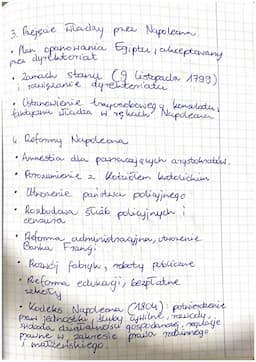 3. Przejście władzy przez Napoleona
• Plan opanowania Egiptu, akceptowany
przez dyrektoriat
• Zamach stanu (9 listopada 1799)
i rozwiązanie dyrektoriatu
• Ustanowienie trzyosobowego konsulatu,
faktyczna władza w rękach Napoleona
4. Reformy Napoleona
• Amnestia dla powracających arystokratów.
• Porozumienie z Kościołem katolickim
• Utworzenie państwa policyjnego
• Rozbudowa służb policyjnych i
cenzura
• Reforma administracyjna, utworzenie
Banku Francji
• Rozwój fabryk, roboty publiczne
• Reforma edukacji, bezpłatne
szkoły
• Kodeks Napoleona (1804): potwierdzenie
praw jednostki, śluby cywilne, rozwody,
swoboda działalności gospodarczej, regulacje
prawne w zakresie prawa rodzinnego
i małżeńskiego.